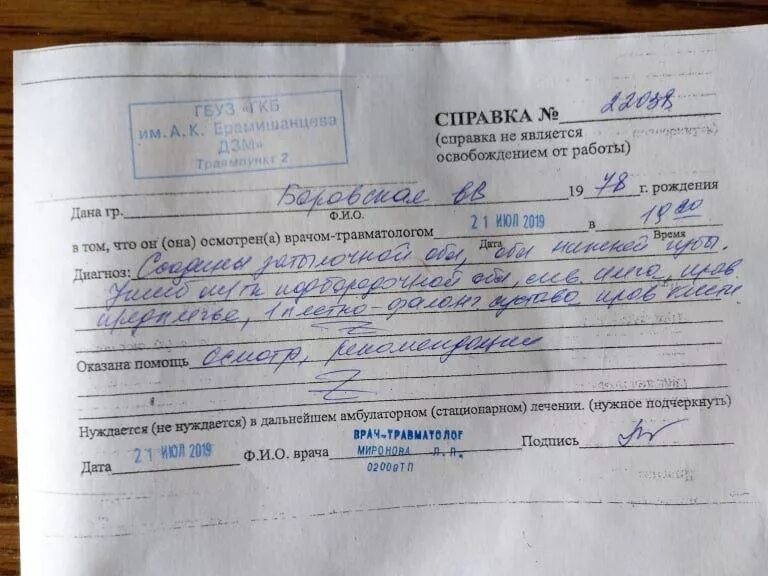 ГБУЗ «ГКБ
им. А.К. Ерамишанцева
ДЗМ»
Травмпункт 2
СПРАВКА № 22038
(справка не является
освобождением от работы)
Дана гр. Боровская ВВ 1978 г. рождения
Ф.И.О.
в том, что он (она) осмотрен(а) врачом-травматологом 21 ИЮЛ 2019 в
Дата Время
Диагноз: Ссадины затылочной обл, обл нижней губы.
Ушиб м/тк подбородочной обл, прав
предплечья, 1 плюстно-фаланг сустава прав кисти.
Оказана помощь осмотр, рекомендации
Нуждается (не нуждается) в дальнейшем амбулаторном (стационарном) лечении. (нужное подчеркнуть)
ВРАЧ-ТРАВМАТОЛОГ
Дата 21 ИЮЛ 2019 Ф.И.О. врача МИРОНОВА Л.Л. Подпись
0200вТП